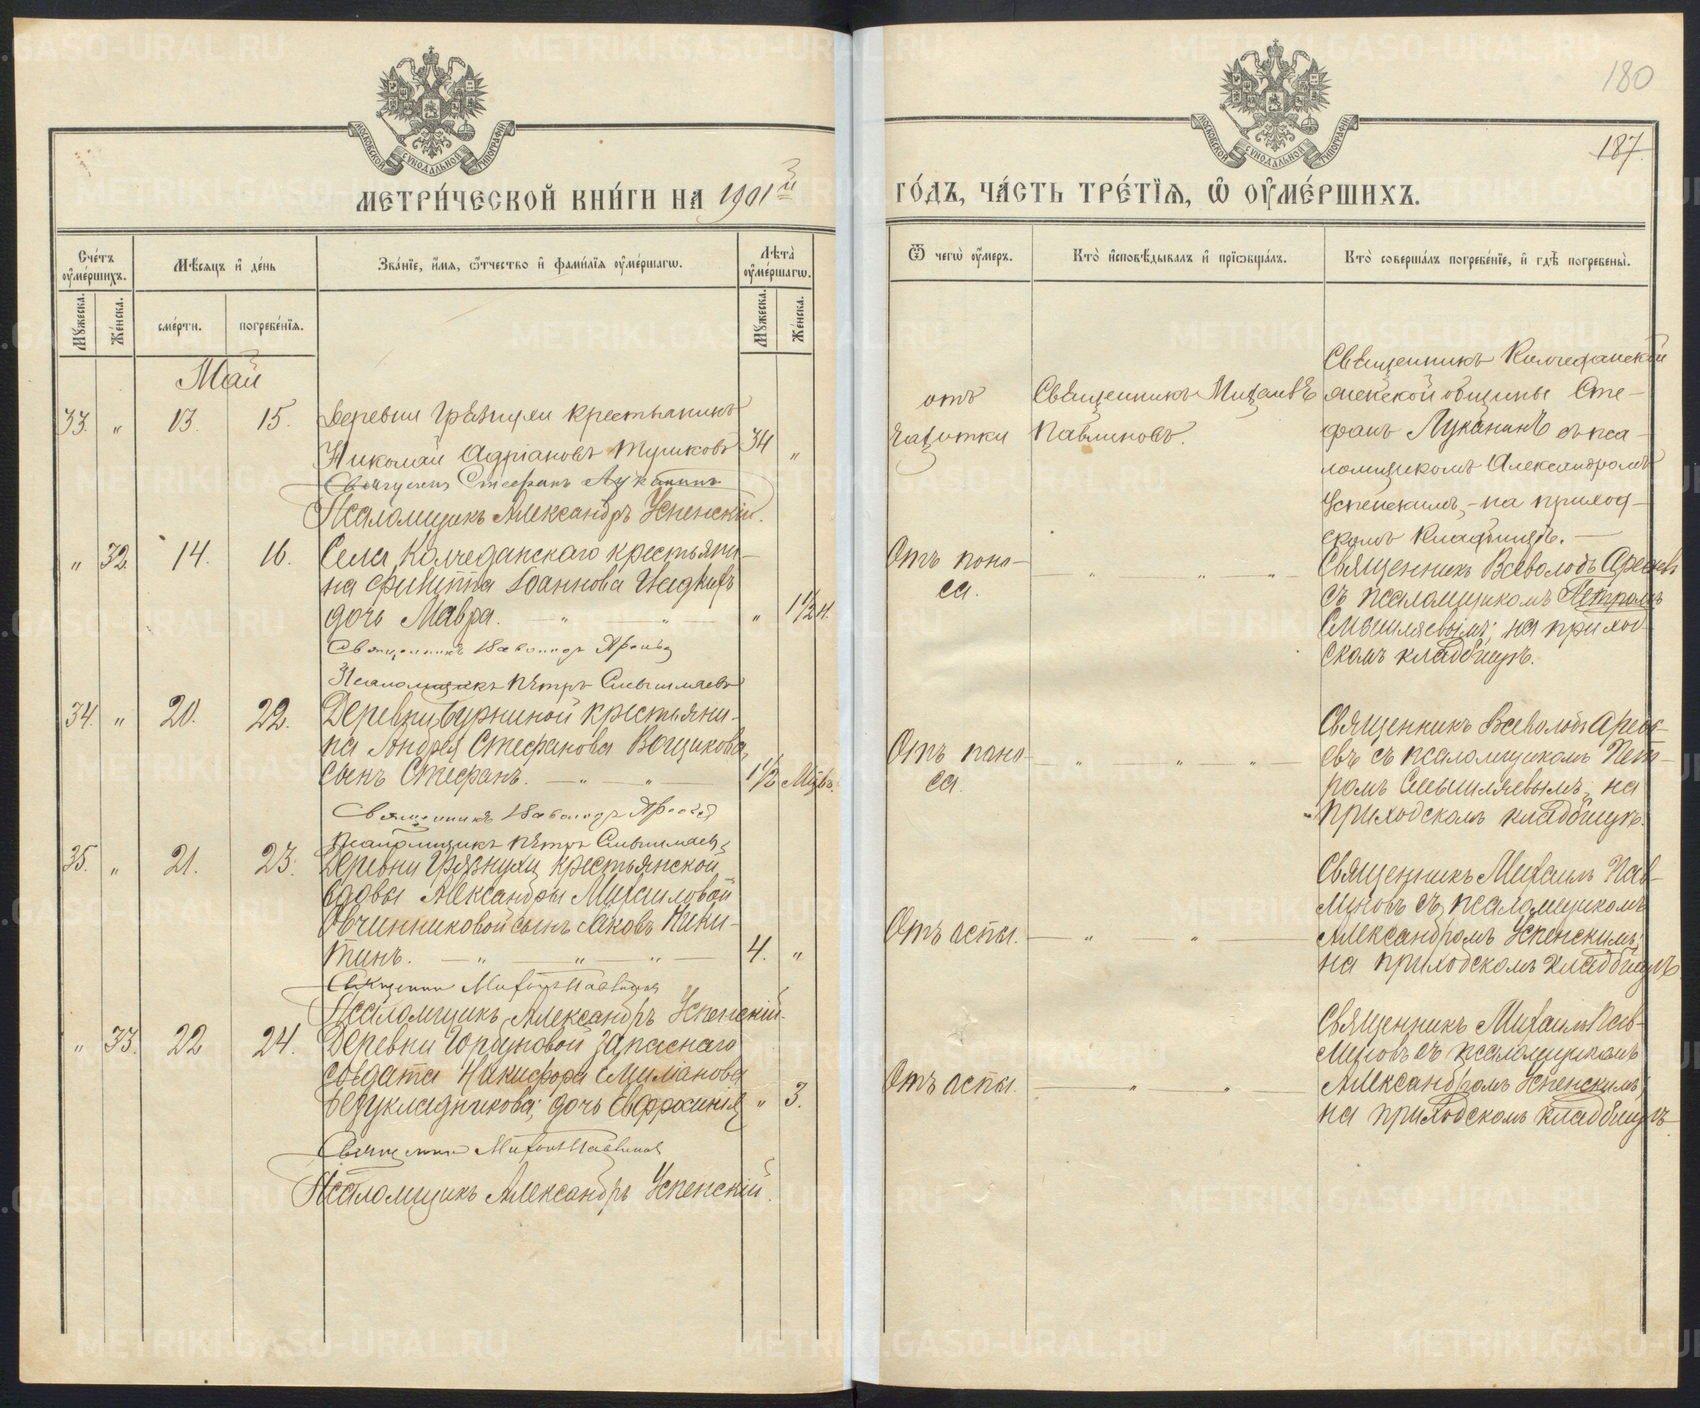 180
187.
МОСКОВСКОЙ СѴНОДАЛЬНОЙ ТИПОГРАФІИ
МОСКОВСКОЙ СѴНОДАЛЬНОЙ ТИПОГРАФІИ
МЕТРИ́ЧЕСКОЙ КНИ́ГИ НА 1901й
ГО́ДЪ, ЧА́СТЬ ТРЕ́ТЇѦ, Ѡ҆ ОУ҆МЕ́РШИХЪ.
Сче́тъ оу҆ме́ршихъ.
Мѣ́сѧцъ и҆ де́нь
Зва́нїе, и҆́мѧ, ѻ҆́тчество и҆ фами́лїѧ оу҆ме́ршагѡ.
Лѣ́та оу҆ме́ршагѡ.
Мꙋ́жеска.
Же́нска.
сме́рти.
погребе́нїѧ.
Мꙋ́жеска.
Же́нска.
Ѿ чегѡ̀ оу҆́меръ.
Кто̀ и҆сповѣ́дывалъ и҆ прїѡбща́лъ.
Кто̀ соверша́лъ погребе́нїе, и҆ гдѣ̀ погребены̀.
Май
33. „ 13. 15.
Деревни Грязнухи крестьянинъ
Николай Адріановъ Тушковъ 34 „
Священ Стефанъ Луканинъ
Псаломщикъ Александръ Успенскій.
отъ
чахотки
Священникъ Михаилъ
Павлиновъ.
Священникъ Колчеданской
женской общины Сте-
фанъ Луканинъ съ пса-
ломщикомъ Александромъ
Успенскимъ, - на приход-
скомъ кладбищѣ.
„ 32 14. 16.
Села Колчеданскаго крестьяни-
на Филиппа Іоаннова
дочь Мавра. — „ — „ — „ 1½ н.
Священникъ Всеволодъ
Псаломщикъ Петръ Смышляевъ
Отъ поно-
са.
— „ — „ — „ —
Священникъ Всеволодъ
съ псаломщикомъ Петромъ
Смышляевымъ; на приход-
скомъ кладбищѣ.
34. „ 20. 22.
Деревни Бурниной крестьяни-
на Андрея Стефанова Вощикова
сынъ Стефанъ. — „ — „ — 1½ Мѣс.
Священникъ Всеволодъ
Псаломщикъ Петръ Смышляевъ
Отъ поно-
са.
— „ — „ — „ —
Священникъ Всеволодъ
съ псаломщикомъ Пет-
ромъ Смышляевымъ; на
приходскомъ кладбищѣ.
35. „ 21. 23.
Деревни Грязнухи крестьянской
вдовы Александры Михаиловой
Овчинниковой сынъ Іаковъ Ники-
тинъ. — „ — „ — „ — 4. „
Священник Михаилъ Павлинов
Псаломщикъ Александръ Успенскій.
Отъ оспы.
— „ — „ —
Священникъ Михаилъ Пав-
линовъ съ псаломщикомъ
Александромъ Успенскимъ;
на приходскомъ кладбищѣ
„ 33. 22 24.
Деревни Горуновой запаснаго
солдата Никифора
дочь Евфросинія „ 3.
Священник Михаилъ Павлинов
Псаломщикъ Александръ Успенскій.
Отъ оспы.
— „ — „ —
Священникъ Михаилъ Пав-
линовъ съ псаломщикомъ
Александромъ Успенскимъ;
на приходскомъ кладбищѣ.
METRIKI.GASO-URAL.RU